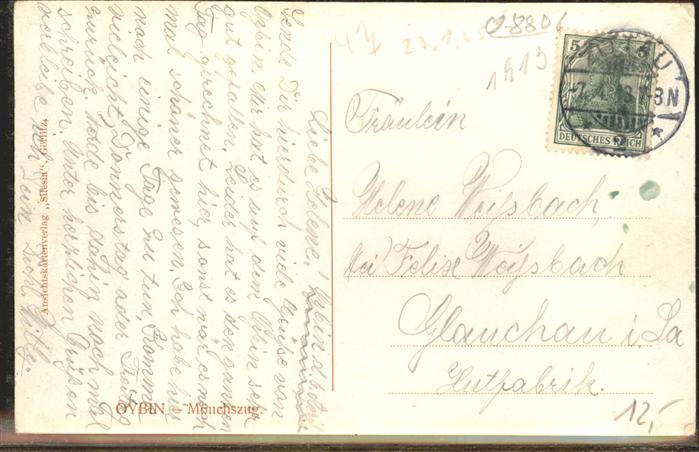 Liebe Helene!
Sende Dir hierdurch viele Grüße von
Oybin. Mir hat es auf dem Oybin sehr
gut gefallen. Leider hat es den ganzen
Tag geregnet hier, sonst wär es noch
mal schöner gewesen. Ich habe hier
noch einige Tage zu tun, komme
vielleicht Donnerstag oder Freitag
zurück. Werde bis dahin noch mal
schreiben. Unter herzlichen Grüßen
verbleibe ich Dein
Ansichtskartenverlag „Silesia“, Görlitz.
OYBIN – Mönchszug.
08806
23.1.
1913
5 5
DEUTSCHES REICH
Fräulein
Helene Weißbach
bei Felix Weißbach
Glauchau i. Sa
Hutfabrik.
12,-